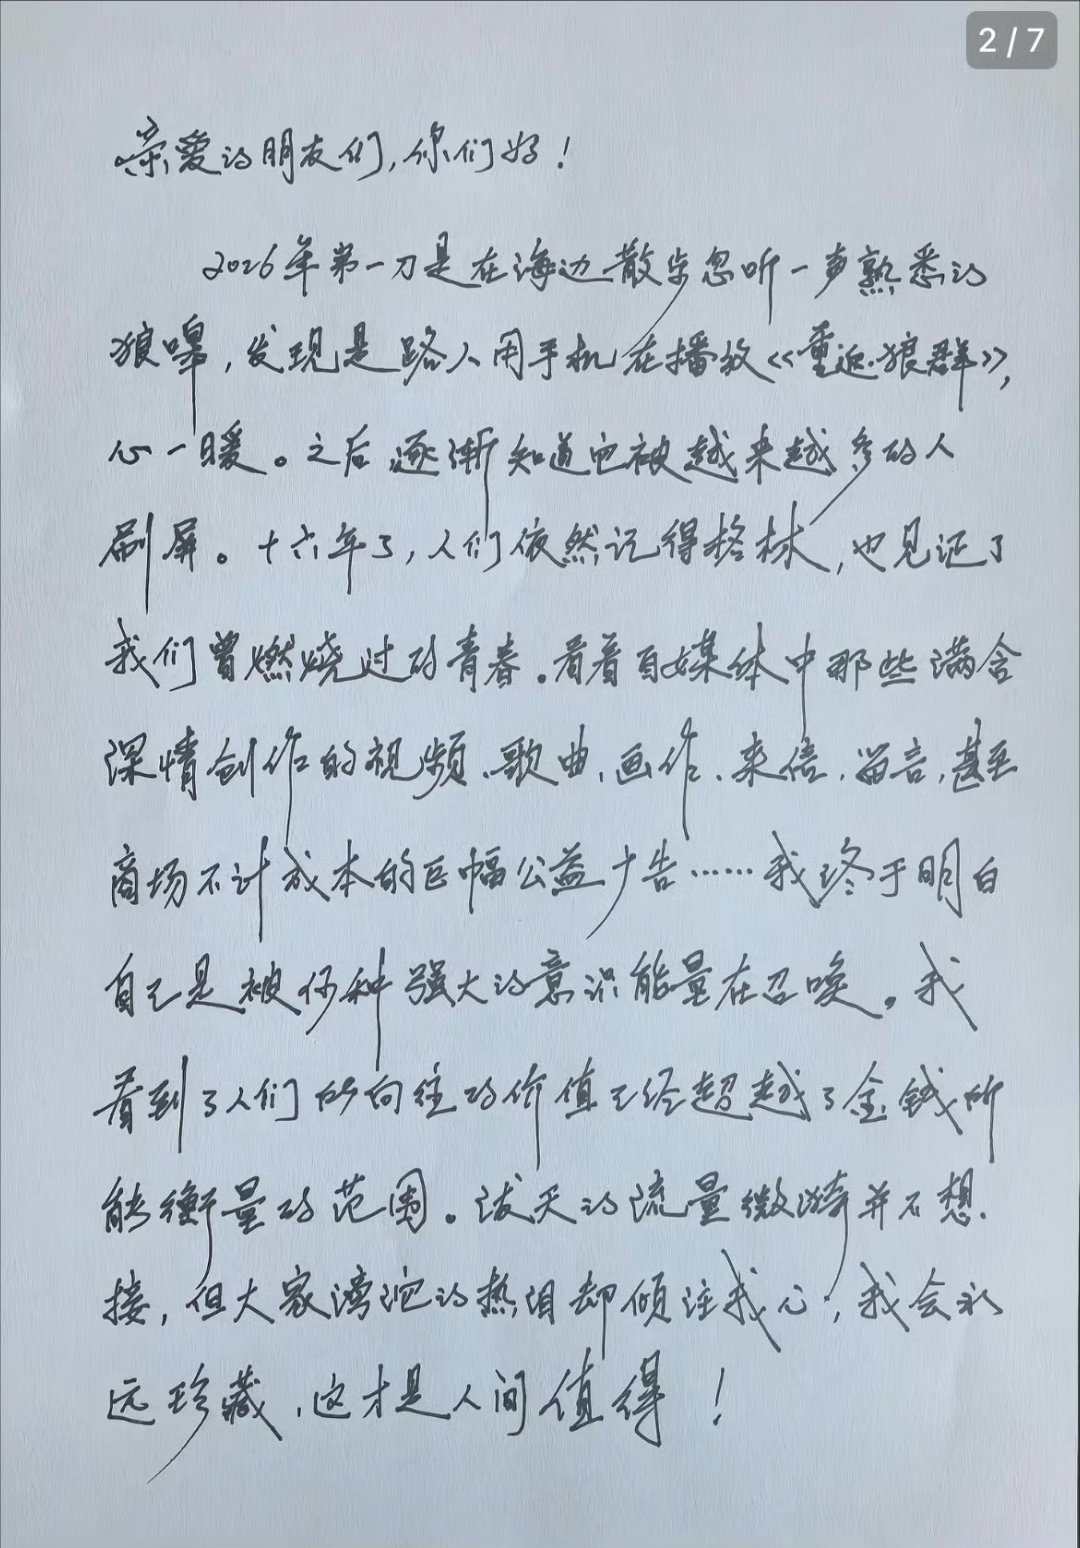 2/7
亲爱的朋友们,你们好!
2026年第一刀是在海边散步忽听一声熟悉的
狼嗥,发现是路人用手机在播放《重返·狼群》,
心一暖。之后逐渐知道它被越来越多的人
刷屏。十六年了,人们依然记得格林,也见证了
我们曾燃烧过的青春。看着自媒体中那些满含
深情创作的视频、歌曲、画作、来信、留言,甚至
商场不计成本的巨幅公益广告……我终于明白
自己是被何种强大的意识能量在召唤。我
看到了人们所向往的价值已经超越了金钱所
能衡量的范围。泼天的流量微漪并不想
接,但大家滂沱的热泪却倾注我心,我会永
远珍藏,这才是人间值得!